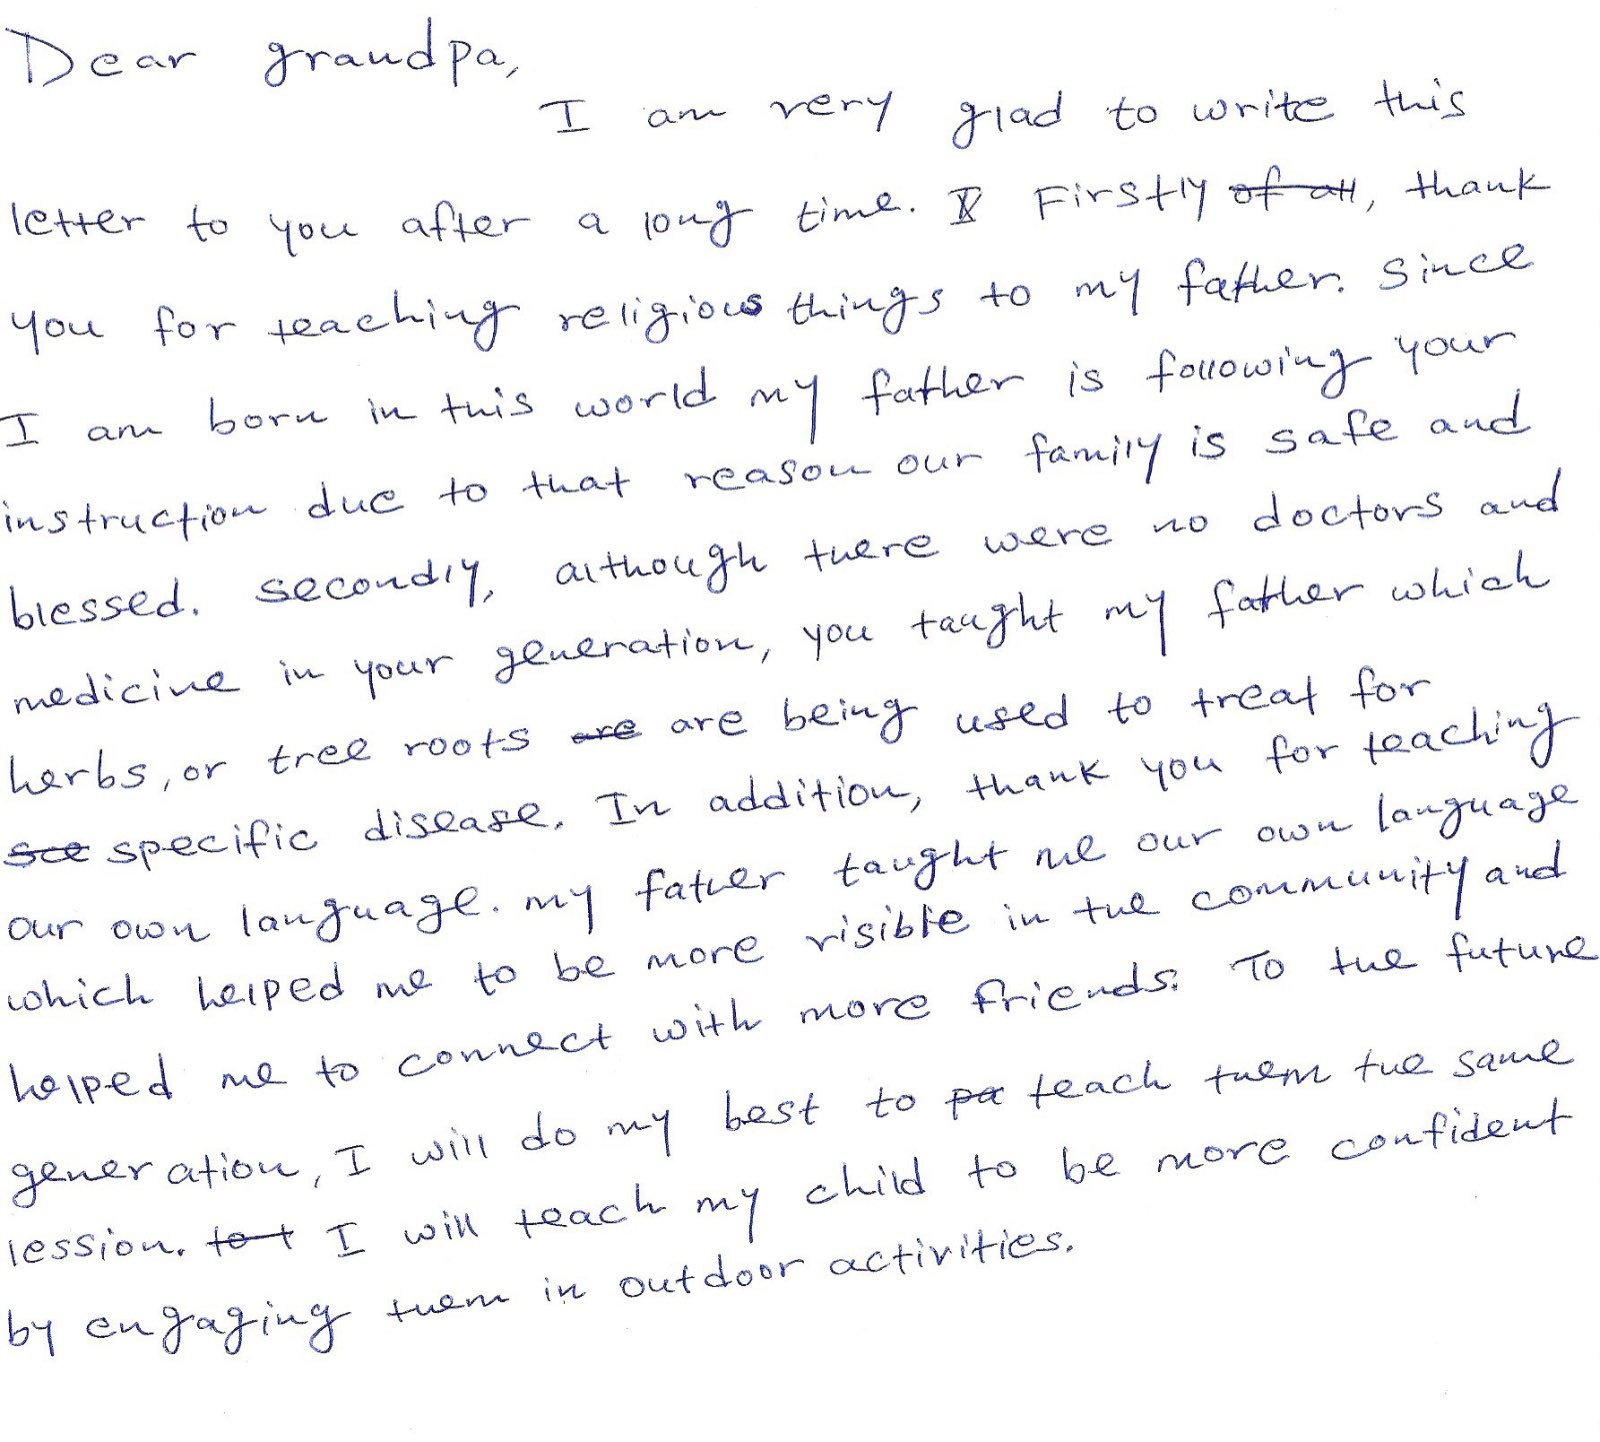 Dear grandpa,
I am very glad to write this
letter to you after a long time. Firstly of all, thank
you for teaching religious things to my father. Since
I am born in this world my father is following your
instruction due to that reason our family is safe and
blessed. secondly, although there were no doctors and
medicine in your generation, you taught my father which
herbs, or tree roots are are being used to treat for
specific disease. In addition, thank you for teaching
our own language. my father taught me our own language
which helped me to be more visible in the community and
helped me to connect with more friends. To the future
generation, I will do my best to pa teach them the same
lession. tot I will teach my child to be more confident
by engaging them in outdoor activities.